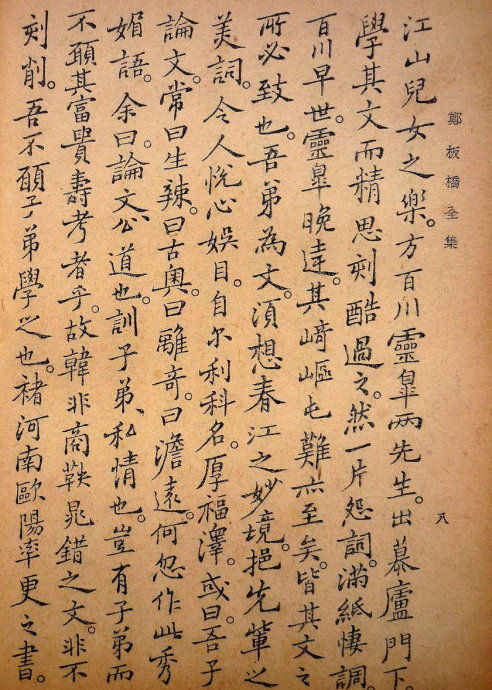 鄭板橋全集
八
江山兒女之樂。方百川靈皐兩先生。出慕廬門下。
學其文而精思刻酷過之。然一片怨詞。滿紙悽調。
百川早世。靈皐晚達。其崎嶇屯難亦至矣。皆其文之
所必致也。吾弟為文。須想春江之妙境。挹先輩之
美詞。令人悅心娛目。自尔利科名。厚福澤。或曰。吾子
論文。常曰生辣。曰古奧。曰離奇。曰澹遠。何忽作此秀
媚語。余曰。論文公道也。訓子弟。私情也。豈有子弟而
不願其富貴壽考者乎。故韓非商鞅晁錯之文。非不
刻削。吾不願子弟學之也。褚河南歐陽率更之書。